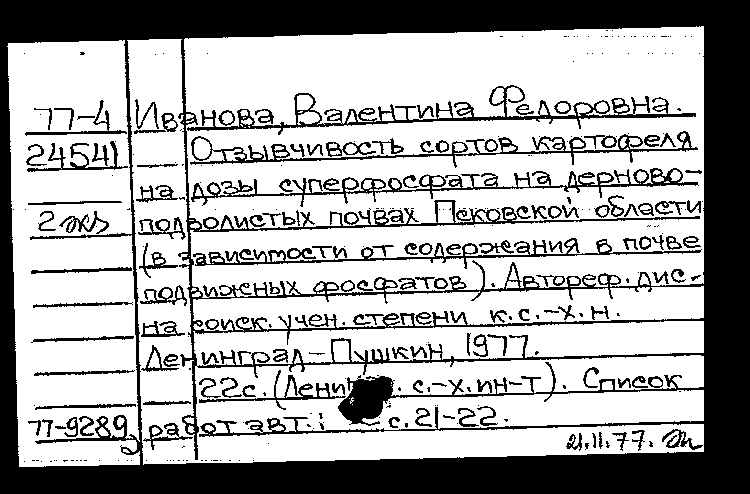 77-4 Иванова, Валентина Федоровна.
24541 Отзывчивость сортов картофеля
на дозы суперфосфата на дерново-
2 экз подзолистых почвах Псковской области
(в зависимости от содержания в почве
подвижных фосфатов). Автореф. дис.
на соиск. учен. степени к.с.-х.н.
Ленинград-Пушкин, 1977.
22с. (Ленингр. с.-х. ин-т). Список
77-9289 работ авт.: с. 21-22.
21.11.77.